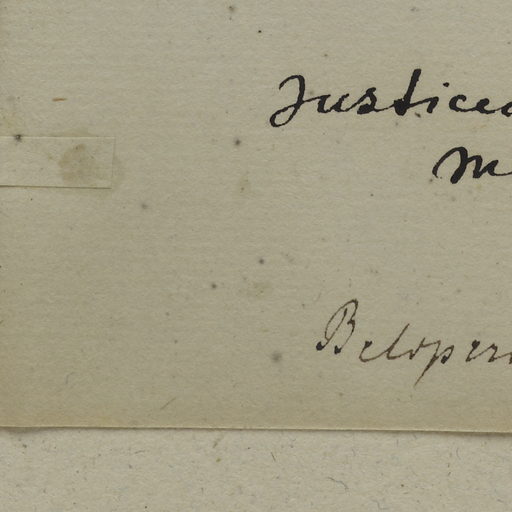 Justicea
M
Belopero